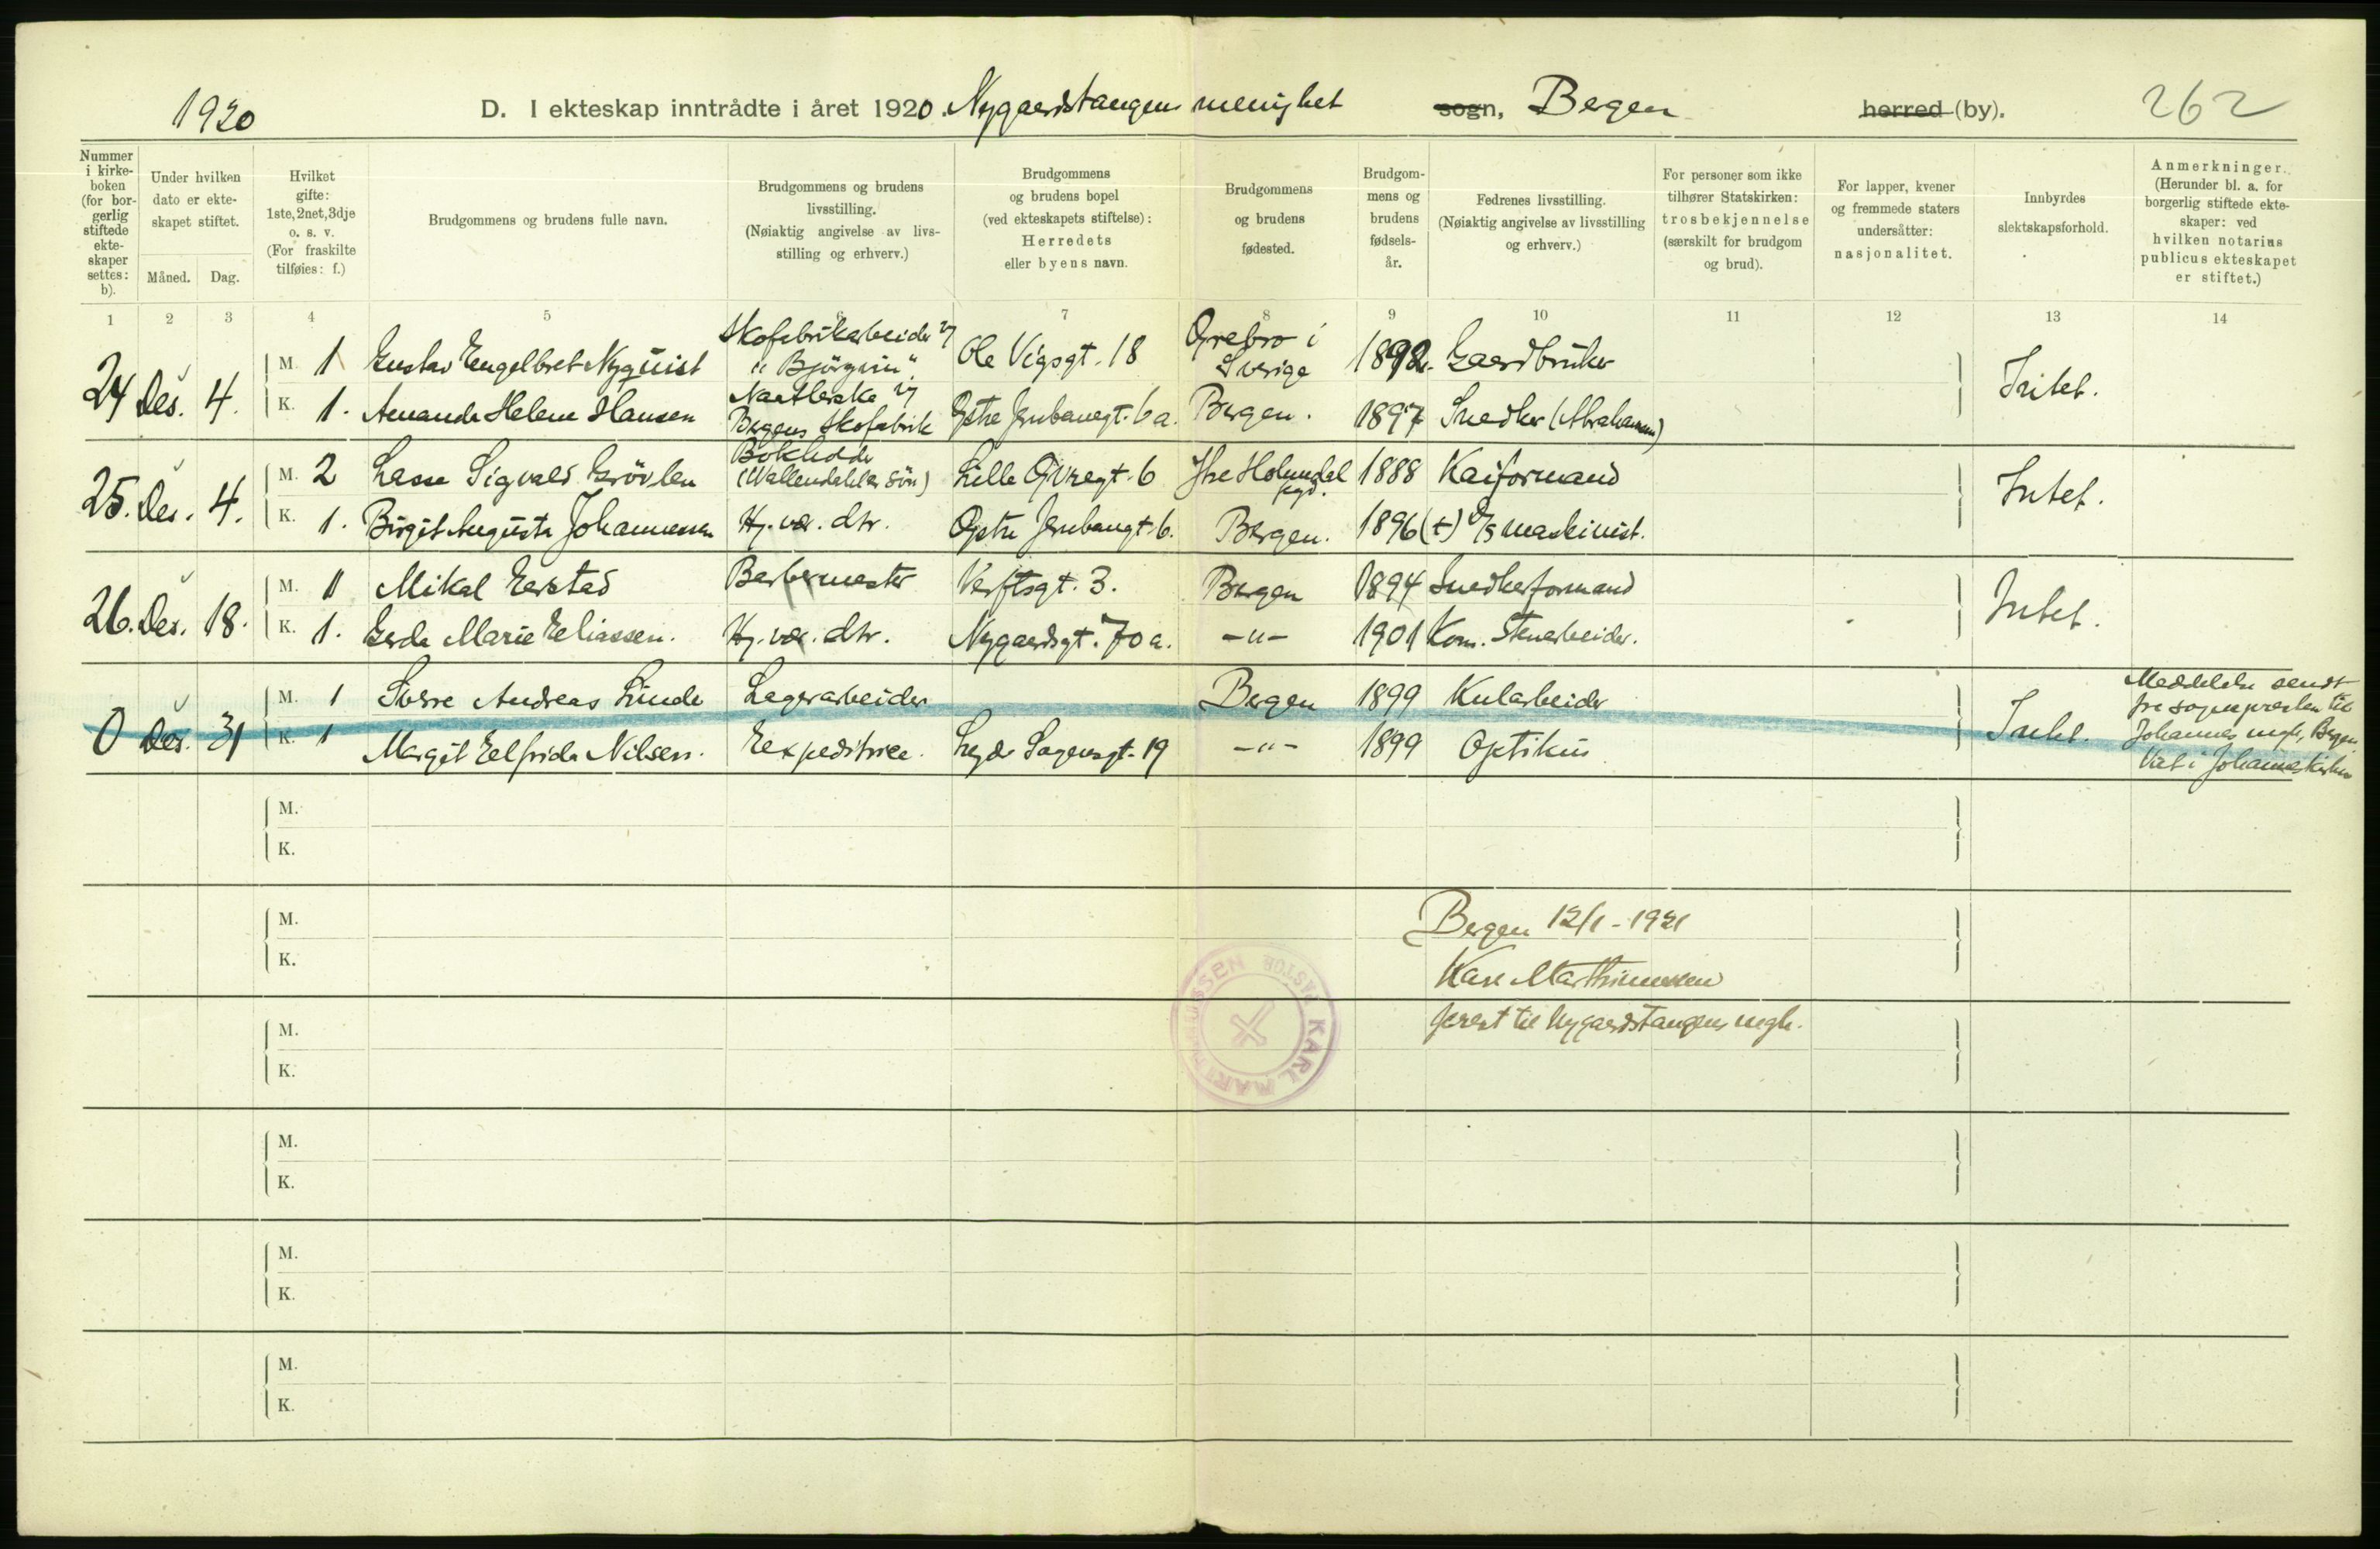 1920 D. I ekteskap inntrådte i året 1920. Nygaardstangens menighet sogn, Bergen herred (by). 262
Nummer i kirkeboken (for borgerlig stiftede ekteskaper settes: b).
Under hvilken dato er ekteskapet stiftet.
Måned. Dag.
Hvilket gifte: 1ste, 2net, 3dje o. s. v. (For fraskilte tilføies: f.)
Brudgommens og brudens fulle navn.
Brudgommens og brudens livsstilling. (Nøiaktig angivelse av livsstilling og erhverv.)
Brudgommens og brudens bopel (ved ekteskapets stiftelse): Herredets eller byens navn.
Brudgommens og brudens fødested.
Brudgommens og brudens fødselsår.
Fedrenes livsstilling. (Nøiaktig angivelse av livsstilling og erhverv.)
For personer som ikke tilhører Statskirken: trosbekjennelse (særskilt for brudgom og brud).
For lapper, kvener og fremmede staters undersåtter: nasjonalitet.
Innbyrdes slektskapsforhold.
Anmerkninger. (Herunder bl. a. for borgerlig stiftede ekteskaper: ved hvilken notarius publicus ekteskapet er stiftet.)
1 2 3 4 5 6 7 8 9 10 11 12 13 14
24 Des. 4.
M. 1 Gustav Engelbret Nyquist Skofabrikarbeider v/ "Björgvin". Ole Vigsgt. 18 Örebro i Sverige 1892. Gaardbruker
K. 1. Amanda Helene Hansen Naatlerske v/ Bergens Skofabrik Östre Jernbanegt. 6a. Bergen. 1897 Snedker (Abrahamsen) Intet.
25. Des. 4.
M. 2 Lasse Sigvald Grövlen Bokholder (Wallendahl & sön) Lille Övregt. 6 Ytre Holmedal 1888 Kaiformand
K. 1. Birgit Augusta Johannessen Hj. vær. dtr. Östre Jernbangt. 6. Bergen. 1896 (+) D/S maskinist. Intet.
26. Des. 18.
M. 1 Mikal Eerstad Barbermester Verftsgt. 3. Bergen 1894 Snedkerformand
K. 1. Gerda Marie Eliassen. Hj. vær. dtr. Nygaardsgt. 70a. -"- 1901 Kom. Stenarbeider. Intet.
0 Des. 31
M. 1 Sverre Andreas Linde Lagerarbeider Bergen 1899 Kularbeider
K. 1 Margit Elfrida Nilsen. Expeditrice. Sagensgt. 19 -"- 1899 Optikus Intet.
Meddelelse sendt
fra sognepresten til
Johannes mgh, Bergen.
Viet i Johanneskirken
M.
K.
M.
K.
Bergen 12/1-1921
Karl Marthinussen
prest til Nygaardstangens mgh.
PASTOR KARL MARTHINUSSEN
M.
K.
M.
K.
M.
K.
M.
K.